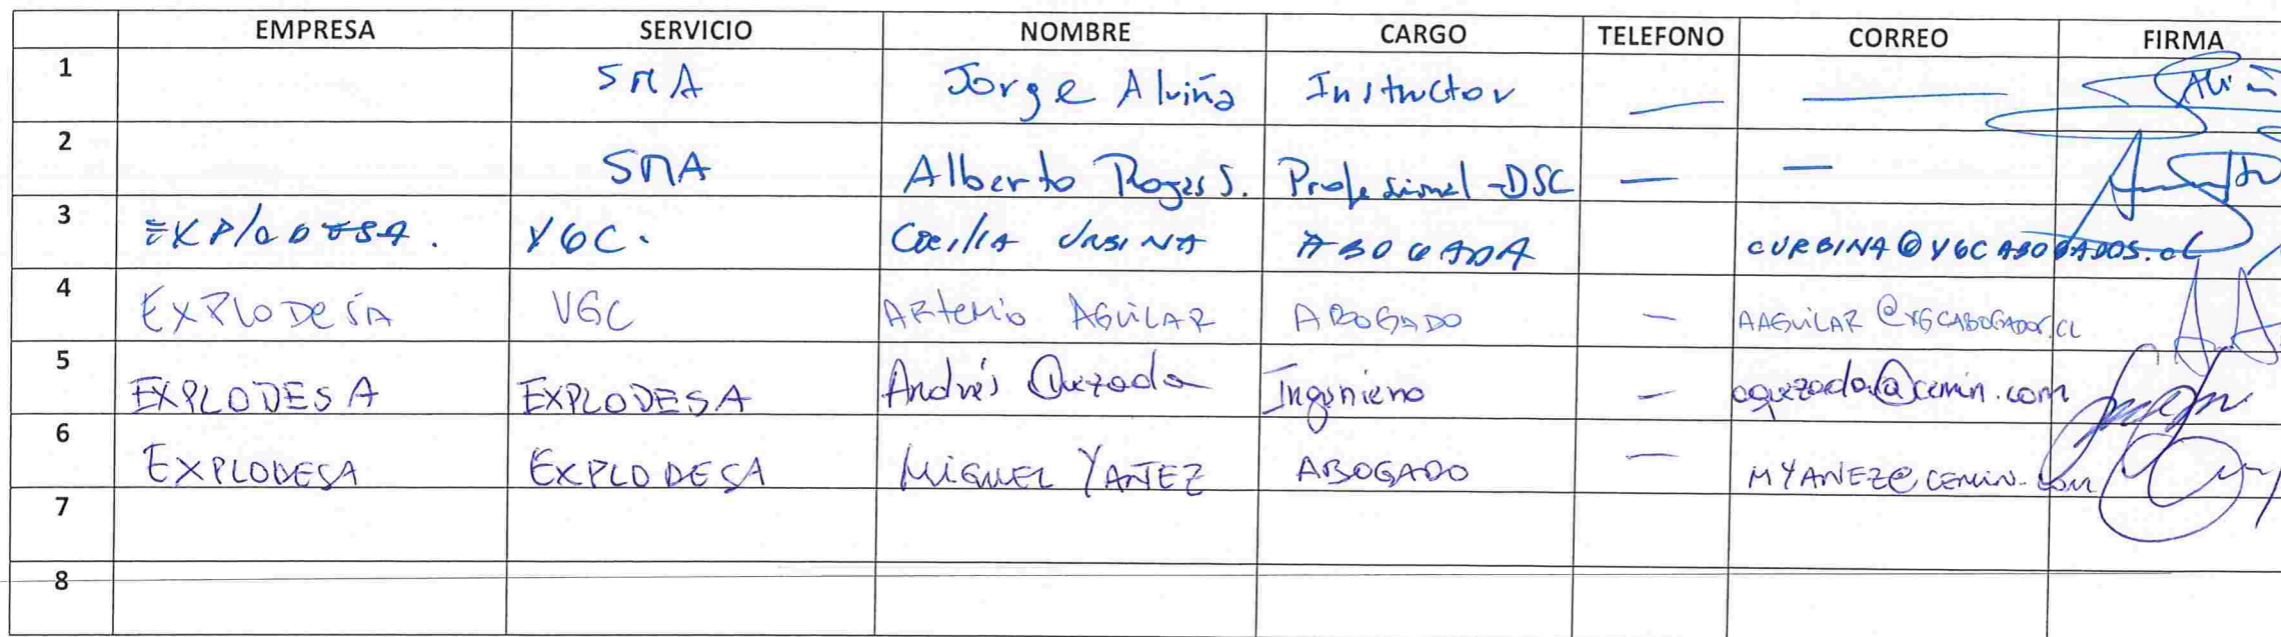 EMPRESA SERVICIO NOMBRE CARGO TELEFONO CORREO FIRMA
1 SMA Jorge Alviña Instructor —
2 SMA Alberto Rojas S. Profesional -DSC — —
3 EXPLODESA. VGC. Cecilia URBINA ABOGADA CURBINA@VGCABOGADOS.CL
4 EXPLODESA VGC ARTEMIO AGUILAR ABOGADO — AAGUILAR@VGCABOGADOS.CL
5 EXPLODESA EXPLODESA Andrés Quezada Ingeniero — aquezada@cemin.com
6 EXPLODESA EXPLODESA MIGUEL YAÑEZ ABOGADO — MYANEZ@CEMIN.com
7
8